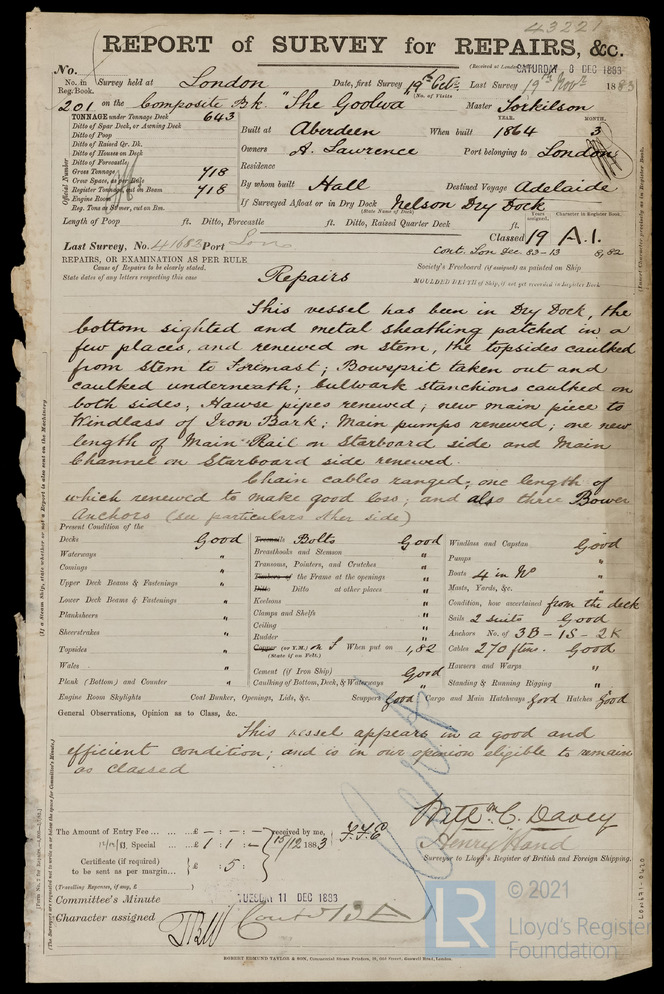 43221
REPORT of SURVEY for REPAIRS, &c.
(Received at London SATURDAY 8 DEC 1883
No.
No. in Reg. Book. Survey held at London Date, first Survey 19th Oct. Last Survey 19th Nov. 1883
(No. of Visits
201 on the Composite Bk. "The Goolwa" Master Torkilson
TONNAGE under Tonnage Deck 643
Ditto of Spar Deck, or Awning Deck
Ditto of Poop
Ditto of Raised Qr. Dk.
Ditto of Houses on Deck
Ditto of Forecastle
Gross Tonnage 718
Crew Space, as per Rule
Register Tonnage, cut on Beam 718
Engine Room
Reg. Tons as Steamer, cut on Bm.
Official Number
Built at Aberdeen When built 1864 3
YEAR. MONTH.
Owners A. Lawrence Port belonging to London
Residence
By whom built Hall Destined Voyage Adelaide
If Surveyed Afloat or in Dry Dock Nelson Dry Dock
(State Name of Dock)
Length of Poop ft. Ditto, Forecastle ft. Ditto, Raised Quarter Deck ft.
Years assigned. Character in Register Book.
Last Survey, No. 41683 Port Lon Classed 19 A.1.
Cont. Lon Dec 83-13 8,82
REPAIRS, OR EXAMINATION AS PER RULE
Cause of Repairs to be clearly stated.
State dates of any letters respecting this case
Society's Freeboard (if assigned) as painted on Ship
Repairs
This vessel has been in Dry Dock, the
bottom sighted and metal sheathing patched in a
few places, and renewed on stem, the topsides caulked
from Stem to Foremast; Bowsprit taken out and
caulked underneath; bulwark stanchions caulked on
both sides; Hawse pipes renewed; new main piece to
Windlass of Iron Bark; Main pumps renewed; one new
length of Main Rail on Starboard side and Main
Channel on Starboard side renewed.
Chain cables ranged; one length of
which renewed to make good loss; and also three Bower
Anchors (see particulars other side)
Present Condition of the
Decks Good
Waterways "
Comings "
Upper Deck Beams & Fastenings "
Lower Deck Beams & Fastenings "
Planksheers "
Sheerstrakes "
Topsides "
Wales "
Plank (Bottom) and Counter "
Engine Room Skylights
Treenails Bolts Good
Breasthooks and Stemson "
Transoms, Pointers, and Crutches "
Timbers of the Frame at the openings "
Ditto Ditto at other places "
Keelsons "
Clamps and Shelfs "
Ceiling "
Rudder "
Copper (or Y.M.) When put on 1,82
(State if on Felt.)
Cement (if Iron Ship) Good
Caulking of Bottom, Deck, & Waterways "
Coal Bunker, Openings, Lids, &c. Scuppers Good
Windlass and Capstan Good
Pumps "
Boats 4 in No "
Masts, Yards, &c. "
Condition, how ascertained from the deck
Sails 2 suits Good
Anchors No. of 3B - 1S - 2K
Cables 270 ftms. Good
Hawsers and Warps "
Standing & Running Rigging "
Cargo and Main Hatchways Good Hatches Good
General Observations, Opinion as to Class, &c.
This vessel appears in a good and
efficient condition; and is in our opinion eligible to remain
as classed
The Amount of Entry Fee ... £ - : - : - received by me,
Special ... £ 1 : 1 : - 15/12 1883
Certificate (if required) £ : 5 :
to be sent as per margin...
(Travelling Expenses, if any, £ )
Henry Hand
Surveyor to Lloyd's Register of British and Foreign Shipping.
Committee's Minute TUESDAY 11 DEC 1883
Character assigned
ROBERT EDMUND TAYLOR & SON, Commercial Steam Printers, 19, Old Street, Goswell Road, London.
LR
© 2021
Lloyd's Register
Foundation